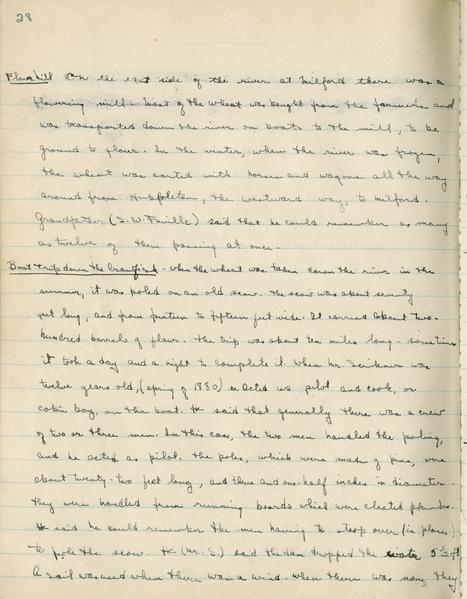 28
Flour Mill On the east side of the river at Milford there was a
flowering mill. Most of the wheat was bought from the farmers and
was transported down the river on boats to the mill, to be
ground to flour. In the winter, when the river was frozen,
the wheat was carted with horses and wagons all the way
around from Hubbleton, the westward way, to Milford.
Grandfather (S.W. Faville) said that he could remember as many
as twelve of them passing at once.
Boat trip down the Crawfish - when the wheat was taken down the river in the
summer, it was poled on an old scow. The scow was about seventy
feet long, and from fourteen to fifteen feet wide. It carried about two-
hundred barrels of flour. The trip was about ten miles long - sometimes
it took a day and a night to complete it. When Mr. was
twelve years old, (spring of 1880) he acted as pilot and cook, or
cabin boy, on the boat. He said that generally there was a crew
of two or three men. In this case, the two men handled the poling,
and he acted as pilot. The poles, which were made of pine, were
about twenty-two feet long, and three and one-half inches in diameter.
They were handled from running boards which were cleated planks.
He said he could remember the men having to stoop over (in places)
to pole the scow. He (Mr. S.) said the dam dropped the water
A sail was used when there was a wind. When there was none, they